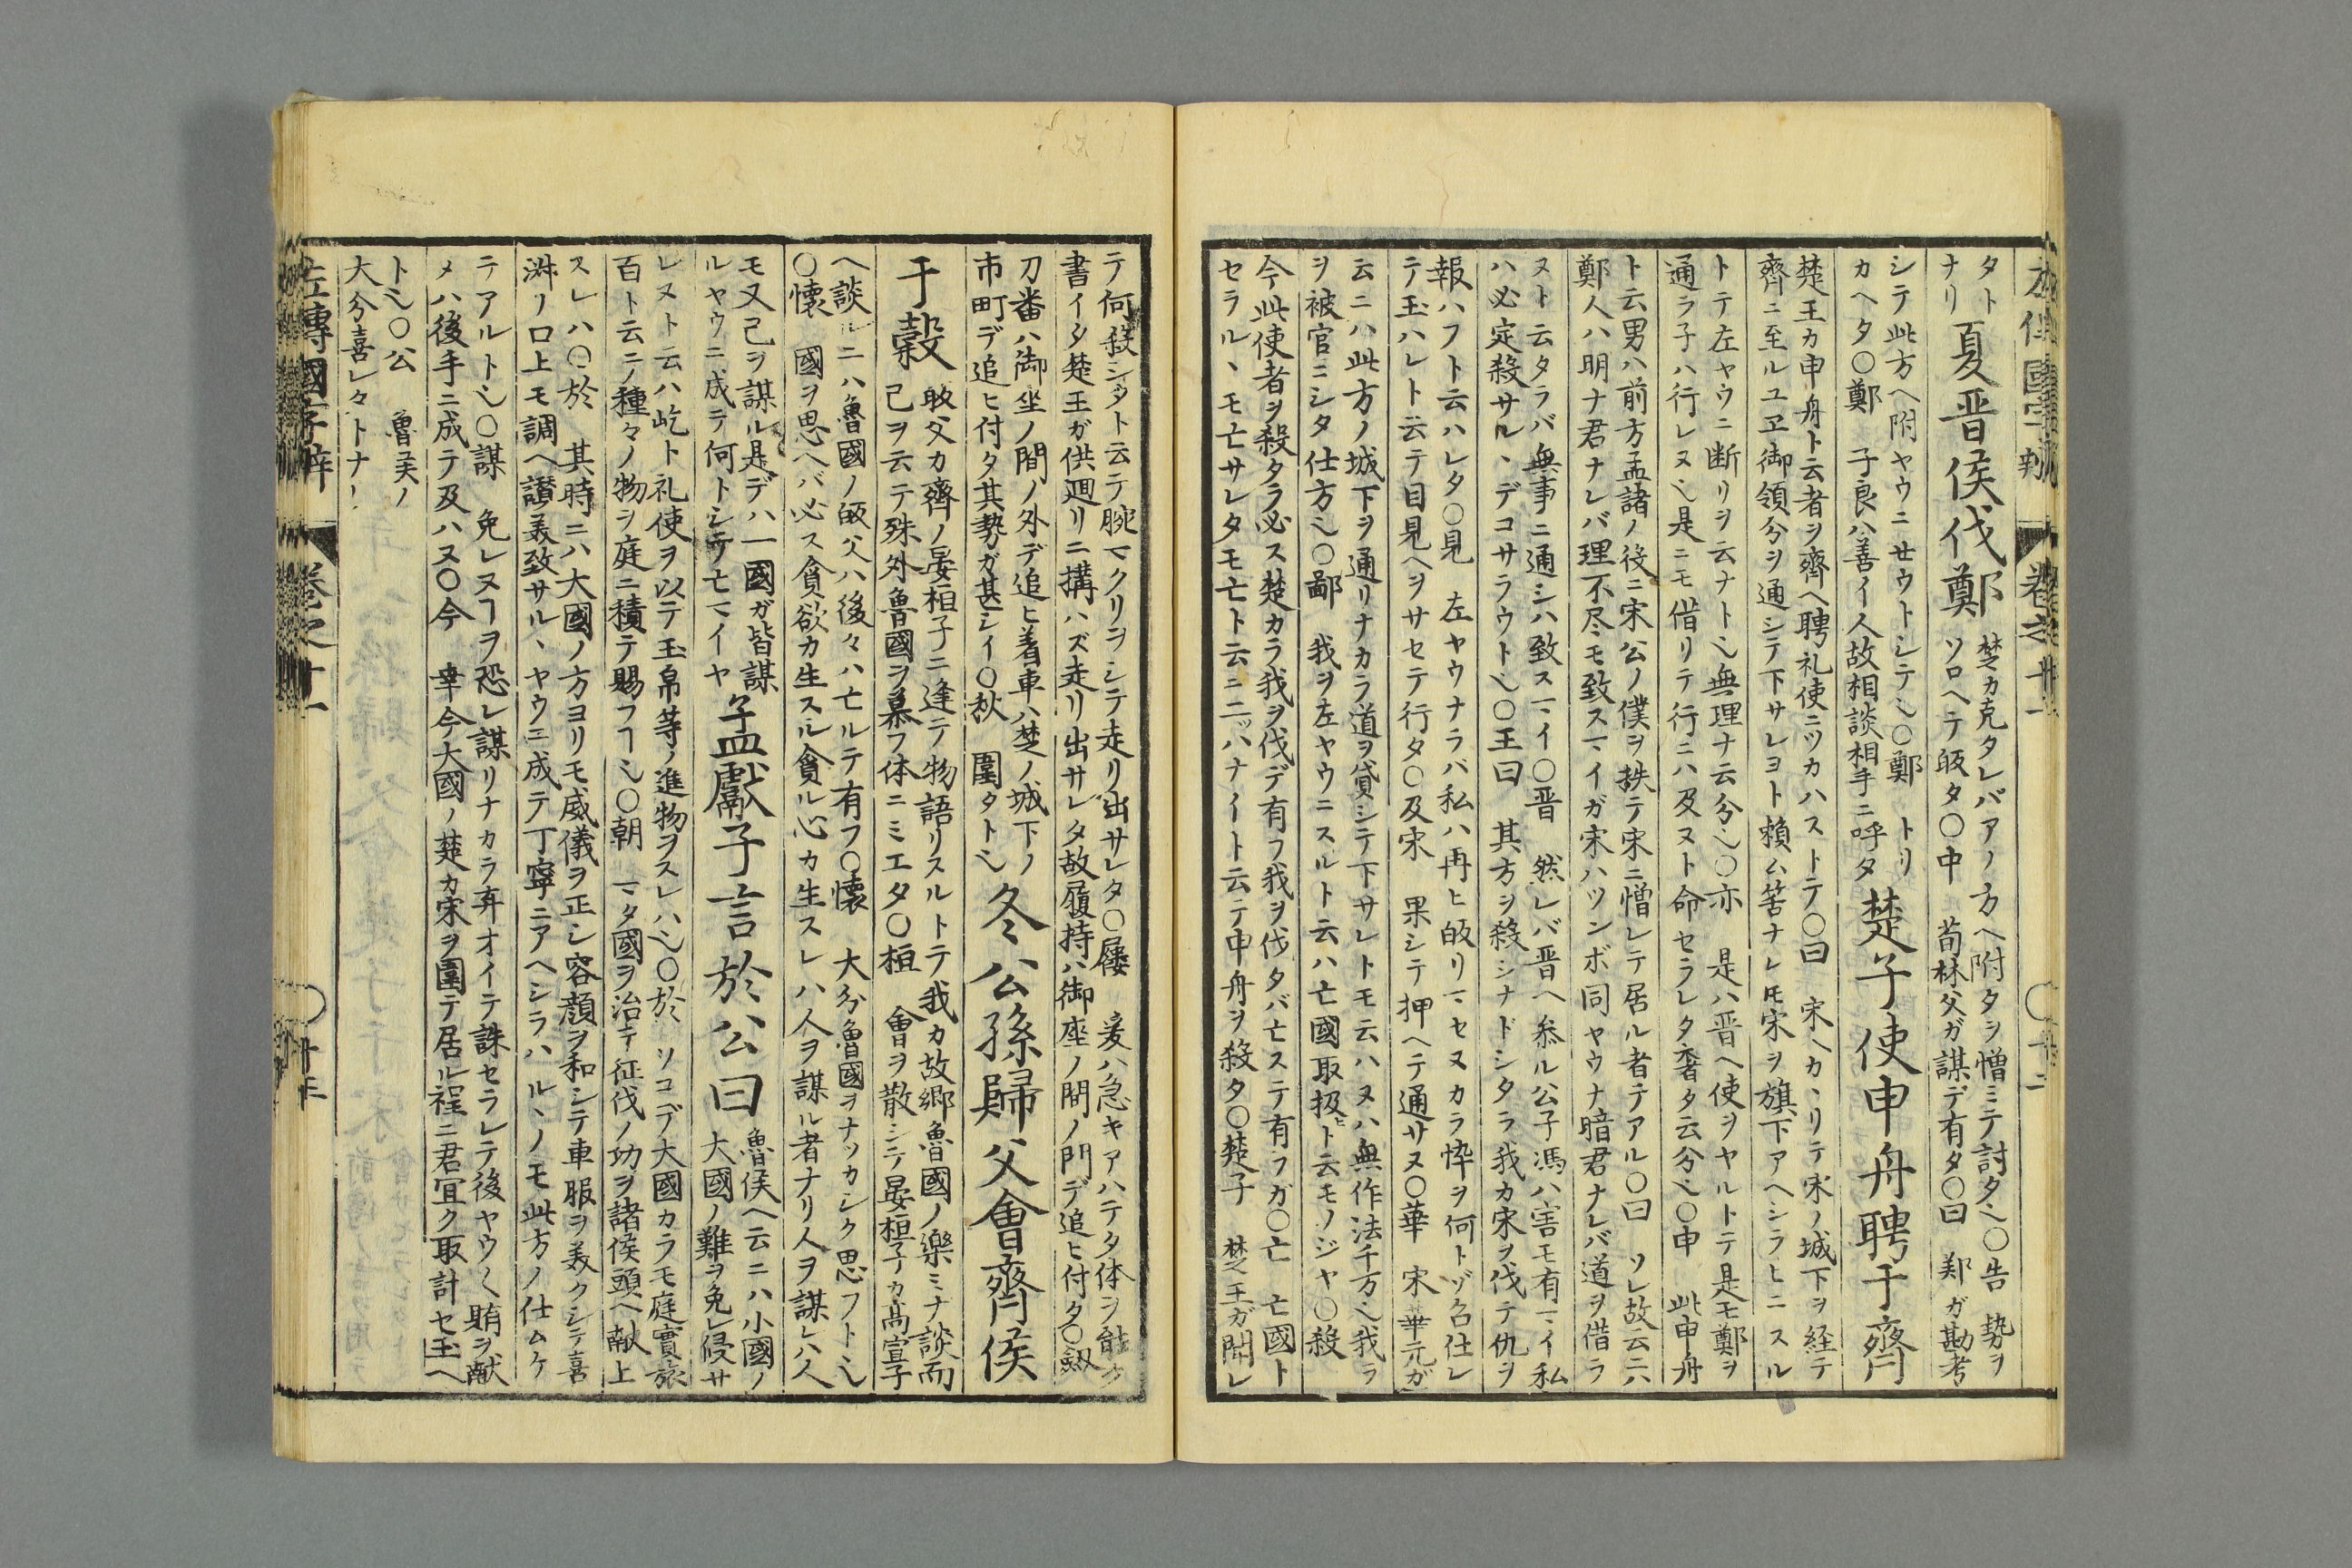 左傳國字辯 卷之十一
タト
ナリ
夏晋侯伐鄭
楚カ克タレバアノ方ヘ附タヲ憎ミテ討タ〇告 勢ヲ
ソロヘテ皈タ〇中 荀林父ガ謀デ有タ〇曰 鄭ガ勘考
シテ此方ヘ附ヤウニセウトシテ〇鄭 トリ
カヘタ〇鄭 子良ハ善イ人故相談相手ニ呼タ
楚子使申舟聘于齊
楚王カ申舟ト云者ヲ齊ヘ聘礼使ニツカハストテ〇曰 宋ヘカヽリテ宋ノ城下ヲ経テ
齊ニ至ルユヱ御領分ヲ通シテ下サレヨト頼ム筈ナレ𪜈宋ヲ旗下アヘシラヒニスル
トテ左ヤウニ断リヲ云ナト〇無理ナ云分〇亦 是ハ晋ヘ使ヲヤルトテ是モ鄭ヲ
通ラ子ハ行レヌ是ニモ借リテ行ニハ及ヌト命セラレタ奢タ云分〇申 此申舟
ト云男ハ前方孟諸ノ役ニ宋公ノ僕ヲ抶テ宋ニ憎レテ居ル者テアル〇曰 ソレ故云ニハ
鄭人ハ明ナ君ナレバ理不尽モ致スマイガ宋ハツンボ同ヤウナ暗君ナレバ道ヲ借ラ
ヌト云タラバ無事ニ通シハ致スマイ〇晋 然レバ晋ヘ参ル公子馮ハ害モ有マイ私
ハ必定殺サルヽデコサラウト〇王曰 其方ヲ殺シナドシタラ我カ宋ヲ伐テ仇ヲ
報ハフト云ハレタ〇見 左ヤウナラバ私ハ再ヒ皈リマセヌカラ悴ヲ何トゾ召仕レ
テ玉ハレト云テ目見ヘヲサセテ行タ〇及宋 果シテ押ヘテ通サヌ〇華 宋華元ガ
云ニハ此方ノ城下ヲ通リナカラ道ヲ貸シテ下サレトモ云ハヌハ無作法千万我ヲ
ヲ被官ニシタ仕方〇鄙 我ヲ左ヤウニスルト云ハ亡國取扱ト云モノジヤ〇殺
今此使者ヲ殺タラ必ス楚カラ我ヲ伐デ有フ我ヲ伐タバ亡ステ有フガ〇亡 亡國ト
セラルヽモ亡サレタモ亡ト云ニ二ッハナイト云テ申舟ヲ殺タ〇楚子 楚王ガ聞レ
テ何殺シタト云テ腕マクリヲシテ走リ出サレタ〇屨 爰ハ急キアハテタ体ヲ能
書イタ楚王ガ供廻リニ搆ハズ走リ出サレタ故履持ハ御座ノ間ノ門デ追ヒ付タ〇劔
刀番ハ御坐ノ間ノ外デ追ヒ着車ハ楚ノ城下ノ
市町デ追ヒ付タ其勢ガ甚シイ〇秋 圍タト
冬公孫歸父會齊侯
于穀
皈父カ齊ノ晏桓子ニ逢テ物語リスルトテ我カ故郷魯國ノ樂ミナ談而
己ヲ云テ殊外魯國ヲ慕フ体ニミエタ〇桓 會ヲ散シテ晏桓子カ高宣子
ヘ談ルニハ魯國ノ皈父ハ後々ハ亡ルテ有フ〇懐 大分魯國ヲナツカシク思フト
〇懐 國ヲ思ヘバ必ス貪欲カ生スル貪ル心カ生スレハ人ヲ謀ル者ナリ人ヲ謀レハ人
モ又己ヲ謀ル是デハ一國ガ皆謀
ルヤウニ成テ何トシテ亡マイヤ
孟獻子言於公曰
魯侯ヘ云ニハ小國ノ
大國ノ難ヲ免レ侵サ
レヌト云ハ屹ト礼使ヲ以テ玉帛等ノ進物ヲスレハ〇於 ソコデ大國カラモ庭實旅
百ト云ニノ種々ノ物ヲ庭ニ積テ賜フヿ〇朝 マタ國ヲ治テ征伐ノ功ヲ諸侯頭ヘ献上
スレハ〇於 其時ニハ大國ノ方ヨリモ威儀ヲ正シ容顔ヲ和シテ車服ヲ美クシテ喜
渕リ口上モ調ヘ讃美致サルヽヤウニ成テ丁寧ニアヘシラハルヽノモ此方ノ仕ムケ
テアルト〇謀 免レヌヿヲ恐レ謀リナカラ弃オイテ誅セラレテ後ヤウ〱賄ヲ献
メハ後手ニ成テ及ハヌ〇今 幸今大國ノ楚カ宋ヲ圍テ居ル程ニ君宜ク取計セ玉ヘ
ト〇公 魯矦ノ
大分喜レタトナリ
左傳國字辯 卷之十一